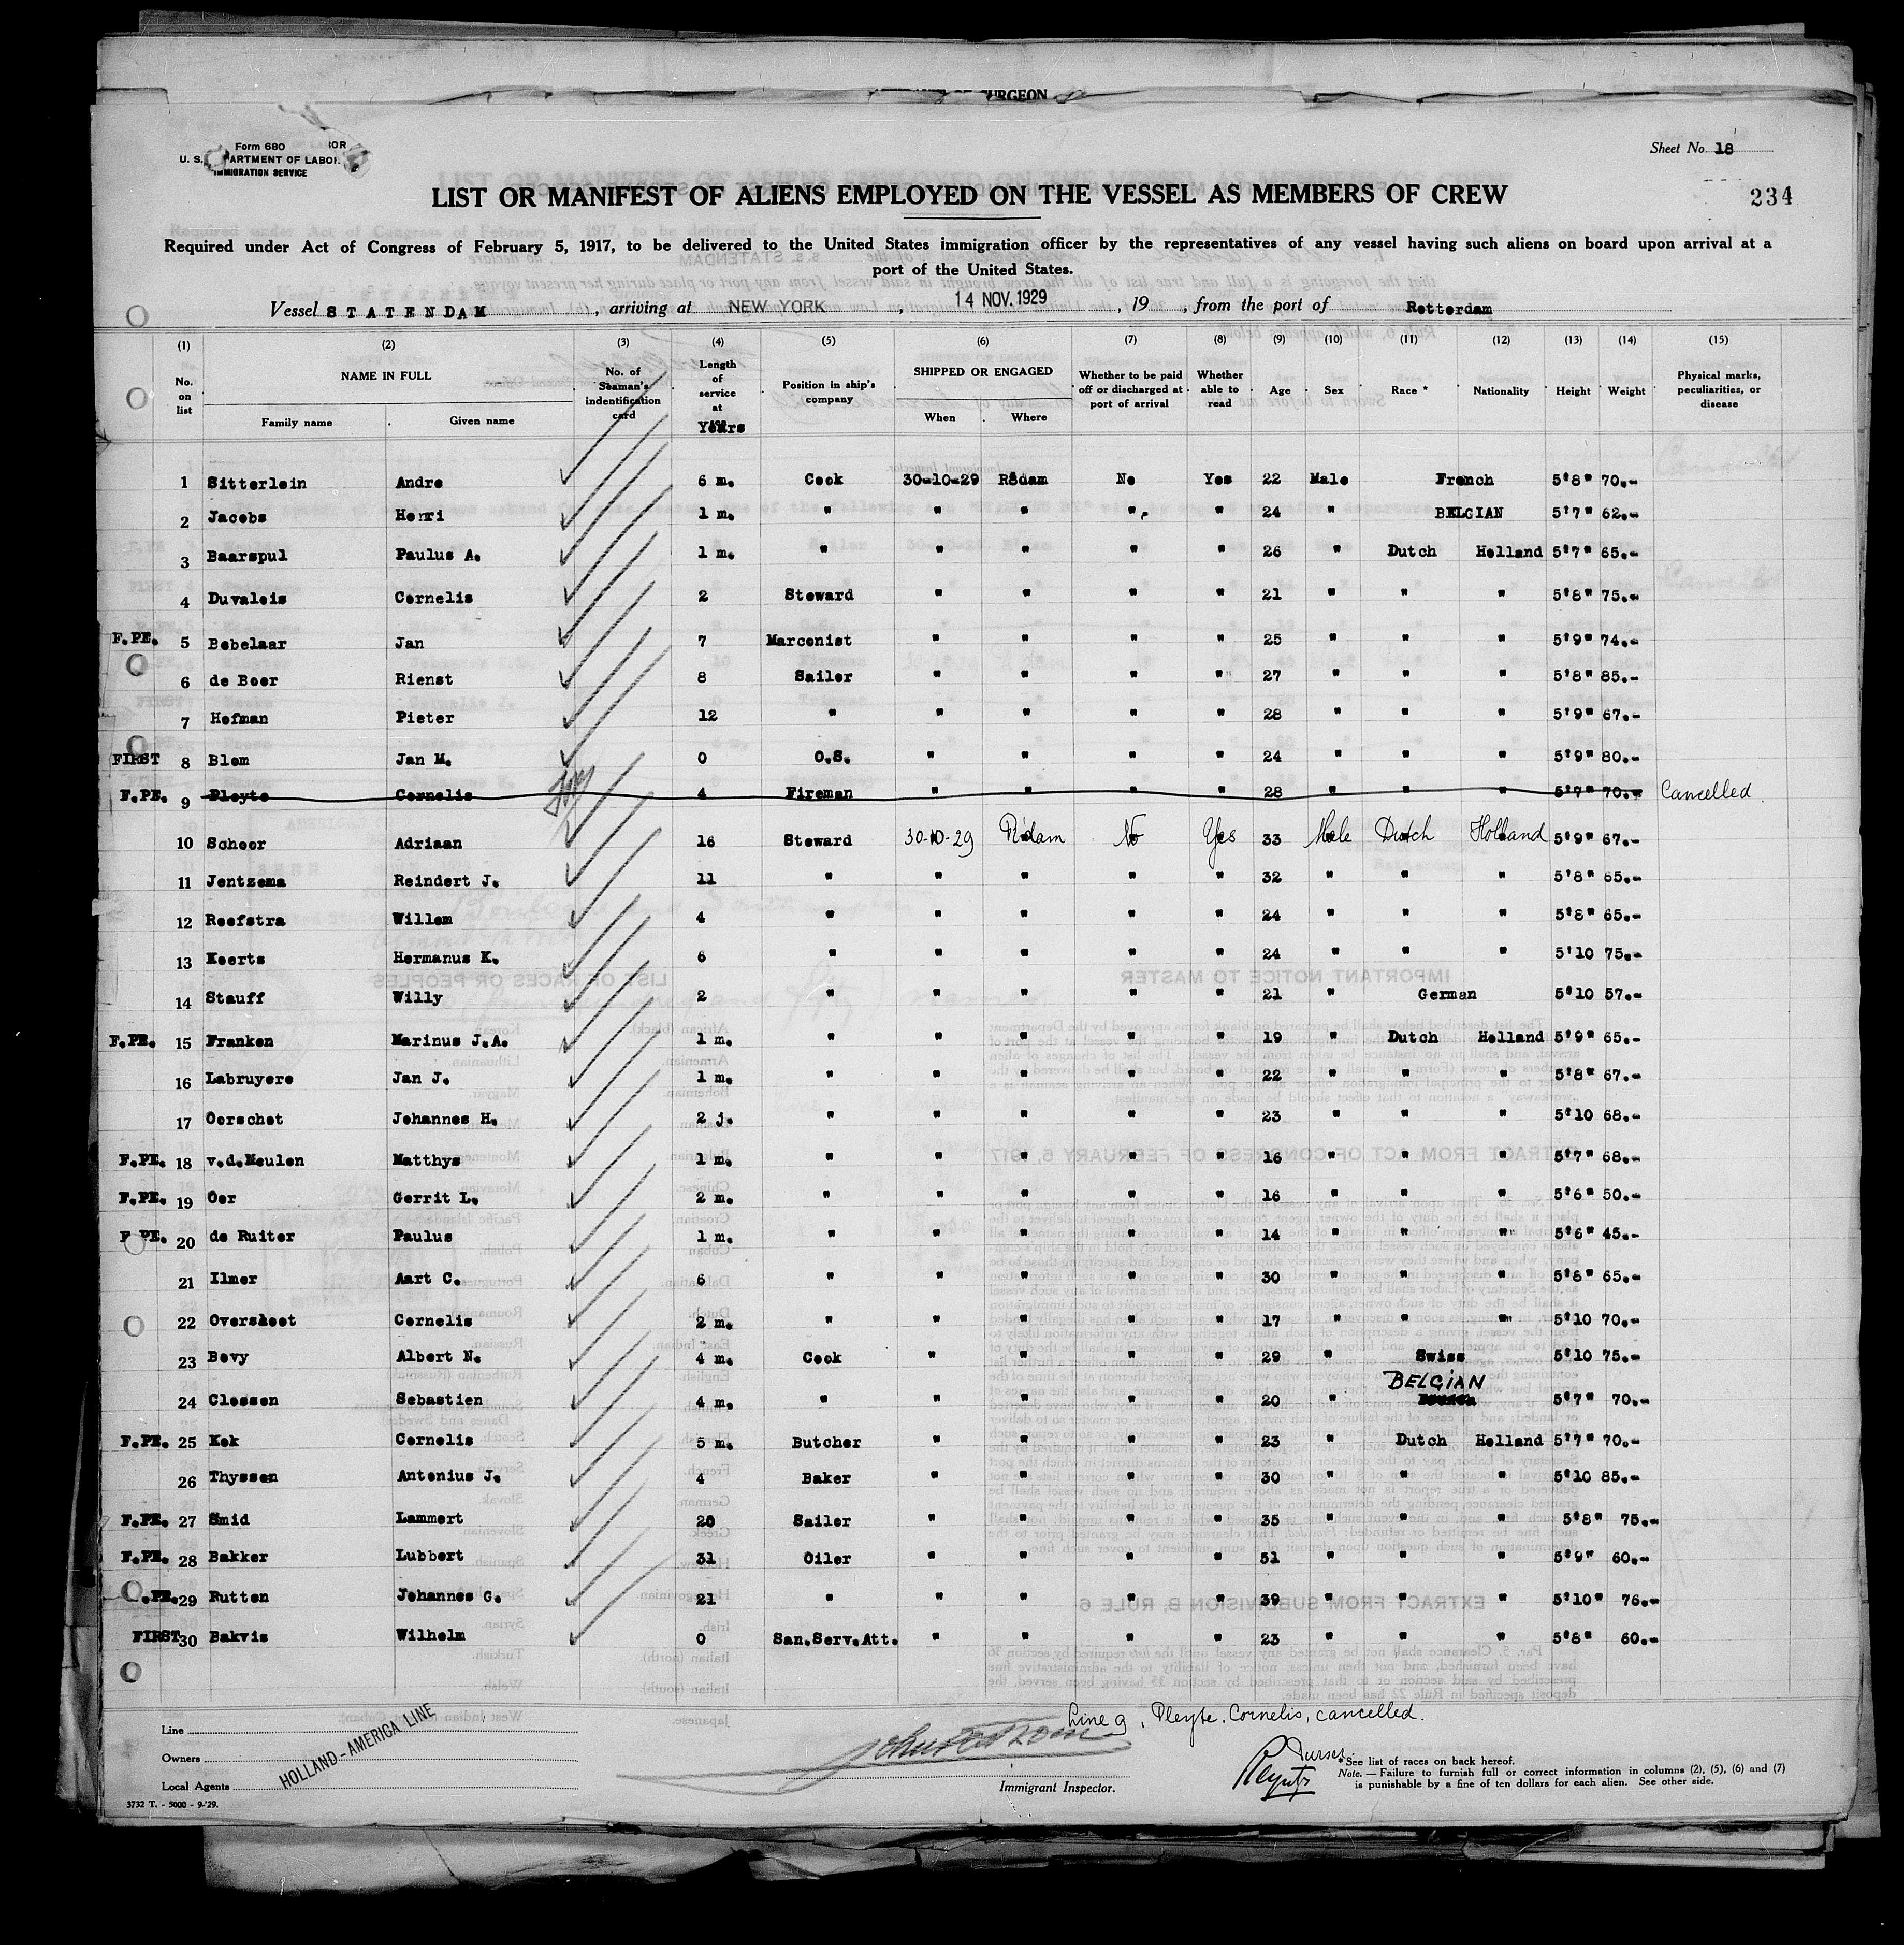 URGEON
Form 680
IOR
U. S. DEPARTMENT OF LABOR
IMMIGRATION SERVICE
Sheet No. 18
LIST OR MANIFEST OF ALIENS EMPLOYED ON THE VESSEL AS MEMBERS OF CREW
234
Required under Act of Congress of February 5, 1917, to be delivered to the United States immigration officer by the representatives of any vessel having such aliens on board upon arrival at a
port of the United States.
Vessel STATENDAM, arriving at NEW YORK, 14 NOV. 1929, 19 , from the port of Rotterdam
(1) (2) (3) (4) (5) (6) (7) (8) (9) (10) (11) (12) (13) (14) (15)
No. on list NAME IN FULL Family name Given name No. of Seaman's indentification card Length of service at Years Position in ship's company SHIPPED OR ENGAGED When Where Whether to be paid off or discharged at port of arrival Whether able to read Age Sex Race * Nationality Height Weight Physical marks, peculiarities, or disease
1 Sitterlein Andre 6 m. Cook 30-10-29 R'dam No Yes 22 Male French 5'8" 70.-
2 Jacobs Henri 1 m. " " " " " 24 " BELGIAN 5'7" 62.-
3 Baarspul Paulus A. 1 m. " " " " " 26 " Dutch Holland 5'7" 65.-
4 Duvalois Cornelis 2 Steward " " " " 21 " " " 5'8" 75.-
F.PE. 5 Bebelaar Jan 7 Marconist " " " " 25 " " " 5'9" 74.-
6 de Boer Rienst 8 Sailor " " " " 27 " " " 5'8" 85.-
7 Hofman Pieter 12 " " " " " 28 " " " 5'9" 67.-
FIRST 8 Blom Jan M. 0 O.S. " " " " 24 " " " 5'9" 80.-
F.PE. 9 Pleyte Cornelis 4 Fireman " " " " 28 " " " 5'7" 70.- Cancelled.
10 Scheer Adriaan 16 Steward 30-10-29 R'dam No Yes 33 Male Dutch Holland 5'9" 67.-
11 Jentzema Reindert J. 11 " " " " " 32 " " " 5'8" 65.-
12 Roefstra Willem 4 " " " " " 24 " " " 5'8" 65.-
13 Koerts Hermanus K. 6 " " " " " 24 " " " 5'10 75.-
14 Stauff Willy 2 " " " " " 21 " German 5'10 57.-
F.PE. 15 Franken Marinus J.A. 1 m. " " " " " 19 " Dutch Holland 5'9" 65.-
16 Labruyere Jan J. 1 m. " " " " " 22 " " " 5'8" 67.-
17 Oerschot Johannes H. 2 j. " " " " " 23 " " " 5'10 68.-
F.PE. 18 v.d.Meulen Matthys 1 m. " " " " " 16 " " " 5'7" 68.-
F.PE. 19 Oor Gerrit L. 2 m. " " " " " 16 " " " 5'6" 50.-
F.PE. 20 de Ruiter Paulus 1 m. " " " " " 14 " " " 5'6" 45.-
21 Ilmer Aart C. 6 " " " " " 30 " " " 5'8" 65.-
22 Oversloot Cornelis 2 m. " " " " " 17 " " " 5'10 70.-
23 Bovy Albert N. 4 m. Cook " " " " 29 " Swiss 5'10 75.-
24 Clossen Sebastien 4 m. " " " " " 20 " BELGIAN 5'7" 70.-
F.PE. 25 Kok Cornelis 5 m. Butcher " " " " 23 " Dutch Holland 5'7" 70.-
26 Thyssen Antonius J. 4 Baker " " " " 30 " " " 5'10 85.-
F.PE. 27 Smid Lammert 20 Sailor " " " " 35 " " " 5'8" 75.-
F.PE. 28 Bakker Lubbert 31 Oiler " " " " 51 " " " 5'9" 60.-
.PE. 29 Rutten Johannes G. 21 " " " " " 39 " " " 5'10" 76.-
FIRST 30 Bakvis Wilhelm 0 San.Serv.Att. " " " " 23 " " " 5'8" 60.-
Line 9, Pleyte, Cornelis, cancelled.
Line
Owners
Local Agents
HOLLAND-AMERICA LINE
Immigrant Inspector.
Purser
*See list of races on back hereof.
Note. — Failure to furnish full or correct information in columns (2), (5), (6) and (7)
is punishable by a fine of ten dollars for each alien. See other side.
3732 T. - 5000 - 9-'29.